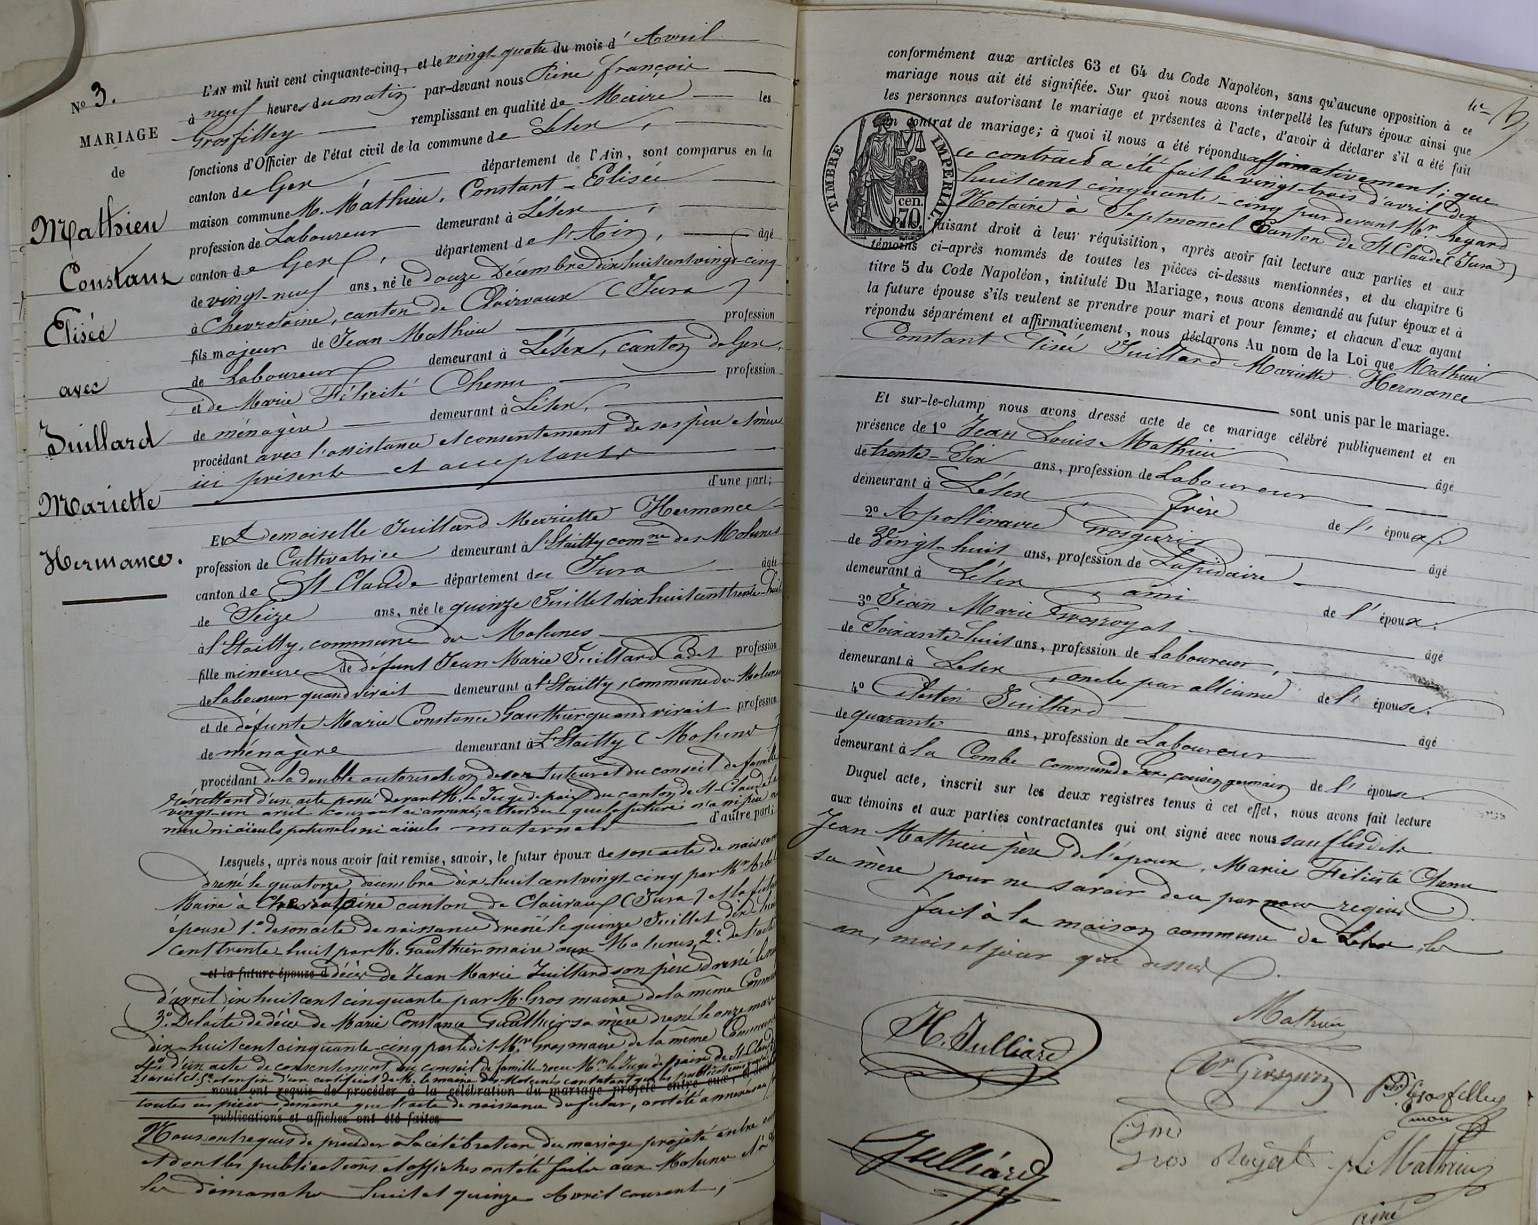 N° 3.
MARIAGE
de
Mathieu
Constant
Elisée
avec
Juillard
Mariette
Hermance.
L'AN mil huit cent cinquante-cinq, et le vingt-quatre du mois d'Avril
à neuf heures du matin par-devant nous Pierre françois
Grosfilley remplissant en qualité de Maire les
fonctions d'Officier de l'état civil de la commune de Lélex,
canton de Gex, département de l'Ain, sont comparus en la
maison commune M. Mathieu, Constant-Elisée
profession de Laboureur demeurant à Lélex,
canton de Gex, département de l'Ain, âgé
de vingt-neuf ans, né le douze Décembre dix huit cent vingt-cinq
à Chevrotaine, canton de Clairvaux (Jura)
fils majeur de Jean Mathieu profession
de Laboureur demeurant à Lélex, canton de Gex,
et de Marie Félicité Chenu profession
de ménagère demeurant à Lélex,
procédant avec l'assistance et consentement de ses père et mère
ici présents et acceptants
d'une part;
Et Demoiselle Juillard Mariette Hermance
profession de Cultivatrice demeurant à l'Etailly comne des Molunes
canton de St Claude département du Jura âgée
de Seize ans, née le quinze Juillet dix huit cent trente-huit
à l'Etailly, commune des Molunes
fille mineure de défunt Jean Marie Juillard Cadet profession
de laboureur quand vivait demeurant à l'Etailly, commune des Molunes
et de defunte Marie Constance Gauthier quand vivait profession
de ménagère demeurant à l'Etailly (Molunes)
procédant de la double autorisation de son tuteur et du conseil de famille
résultant d'un acte passé devant M. le Juge de paix du canton de St-Claude le
vingt-un avril courant ci annexé; attendu que la future n'a ni père ni
mère ni aïeuls paternels ni aïeuls maternels d'autre part;
Lesquels, après nous avoir fait remise, savoir, le futur époux de son acte de naissance
dressé le quatorze décembre dix huit cent vingt-cinq par Mr
Maire à Chevrotaine canton de Clairvaux (Jura) et la future
épouse 1° de son acte de naissance dressé le quinze Juillet dix huit
cent trente huit par M. Gauthier maire aux Molunes, 2° de l'acte
et la future épouse d décès de Jean Marie Juillard son père dressé le
d'avril dix huit cent cinquante par M. Gros maire de la même Commune
3° De l'acte de décès de Marie Constance Gauthier sa mère dressé le onze mars
dix huit cent cinquante-cinq par ledit Mr Gros maire de la même Commune
4° d'un acte de consentement du conseil de famille reçu Mr le Juge de paix de St Claude
21 avril ct. 5° et enfin d'un certificat de M. le maire des Molunes constatant que les publications
nous ont requis de procéder à la célébration du mariage projeté entre eux, et dont les
toutes ces pièces de même que l'acte de naissance du futur, ont été annexées
publications et affiches ont été faites
Nous ont requis de procéder à la célébration du mariage projeté entre eux
et dont les publications et affiches ont été faites aux Molunes et à
les dimanches huit et quinze Avril courant;
conformément aux articles 63 et 64 du Code Napoléon, sans qu'aucune opposition à ce
mariage nous ait été signifiée. Sur quoi nous avons interpellé les futurs époux ainsi que
les personnes autorisant le mariage et présentes à l'acte, d'avoir à déclarer s'il a été fait
un contrat de mariage; à quoi il nous a été répondu affirmativement; que
ce contrat a été fait le vingt-trois d'avril dix
huit cent cinquante-cinq par devant Mr Regard
Notaire à Septmoncel Canton de St Claude (Jura)
TIMBRE IMPERIAL
70 cen.
faisant droit à leur réquisition, après avoir fait lecture aux parties et aux
témoins ci-après nommés de toutes les pièces ci-dessus mentionnées, et du chapitre 6
titre 5 du Code Napoléon, intitulé Du Mariage, nous avons demandé au futur époux et à
la future épouse s'ils veulent se prendre pour mari et pour femme; et chacun d'eux ayant
répondu séparément et affirmativement, nous déclarons Au nom de la Loi que Mathieu
Constant Elisé Juillard Mariette Hermance
sont unis par le mariage.
Et sur-le-champ nous avons dressé acte de ce mariage célébré publiquement et en
présence de 1° Jean Louis Mathieu âgé
de trente-six ans, profession de Laboureur
demeurant à Lélex frère de l'époux
2° Apollinaire Grosgurin âgé
de Vingt-huit ans, profession de Lapidaire
demeurant à Lélex, ami de l'époux.
3° Jean Marie Grosroyat âgé
de Soixante-huit ans, profession de Laboureur,
demeurant à Lélex, oncle par alliance de l'épouse.
4° Juillard âgé
de quarante ans, profession de Laboureur
demeurant à la Combe commune de cousin germain de l'épouse.
Duquel acte, inscrit sur les deux registres tenus à cet effet, nous avons fait lecture
aux témoins et aux parties contractantes qui ont signé avec nous sauf lesdits
Jean Mathieu père de l'époux, Marie Félicité Chenu
sa mère pour ne savoir de ce par nous requis
fait à la maison commune de Lélex les
an, mois et jour que dessus.
H. Julliard
Mathieu
Grosgurin
Grosfilley
maire
Julliard
Gros Royat
J. L. Mathieu
ainé